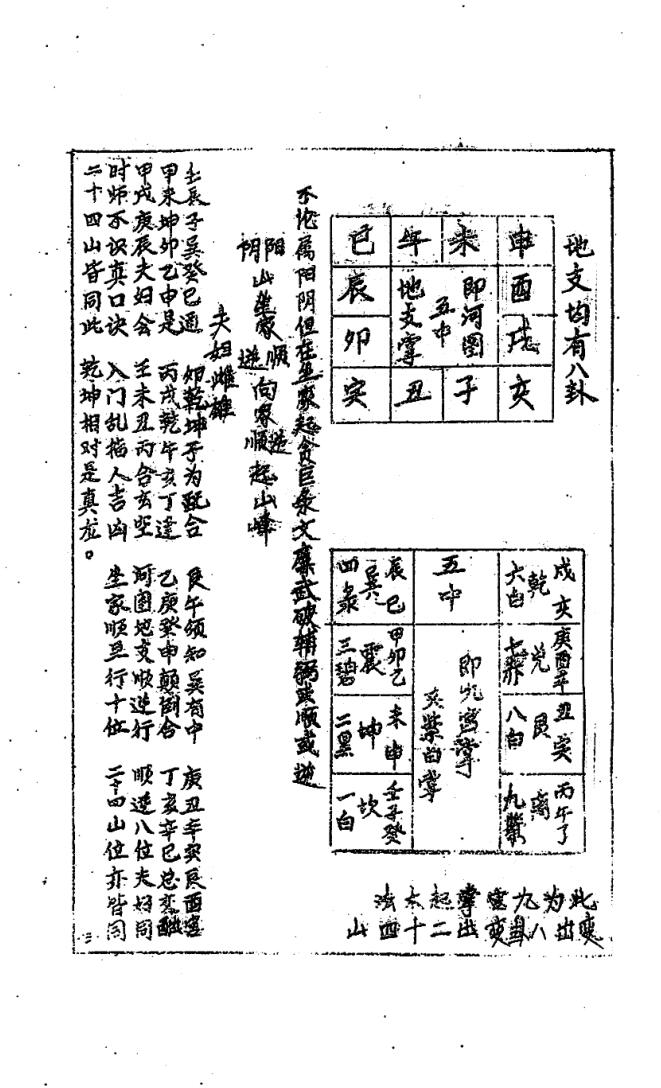 地支均有八卦
申 未 午 巳
酉 即河图 五中 地支掌 辰
戌 卯
亥 子 丑 寅
戌 乾 六白 亥
庚酉辛 兑 七赤
丑 艮 八白 寅
丙午丁 离 九紫
五中
即九宫掌
又紫白掌
辰巳 巽 四录
甲卯乙 震 三碧
未申 坤 二黑
壬子癸 坎 一白
此为九宫掌起太法
变出八卦变出二十四山
不论属阳阴但在坐家起贪巨录文廉武破辅弼或顺或逆
阳山坐家顺向家逆
阴 逆 顺起山峰
夫妇雌雄
壬辰子巽癸巳通 卯乾坤子为配合 艮午须知巽有中 庚丑辛寅艮酉宫
甲未坤卯乙申是 丙戌乾午亥丁逢 乙庚癸申颠倒合 丁亥辛巳总变
甲戌庚辰夫妇会 壬未丑丙合玄空 河图地支顺逆行 顺逆八位夫妇同
时师不识真口诀 入门乱指人吉凶 坐家顺逆行十位 二十四山位亦皆同
二十四山皆同此 乾坤相对是真龙。
三